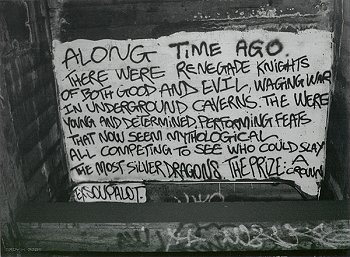 ALONG TIME AGO.
THERE WERE RENEGADE KNIGHTS
OF BOTH GOOD AND EVIL, WAGING WAR
IN UNDERGROUND CAVERNS. THE WERE
YOUNG AND DETERMINED PERFORMING FEATS
THAT NOW SEEM MYTHOLOGICAL
ALL COMPETING TO SEE WHO COULD SLAY
THE MOST SILVER DRAGONS. THE PRIZE: A
CROWN
ESOUPALOT.